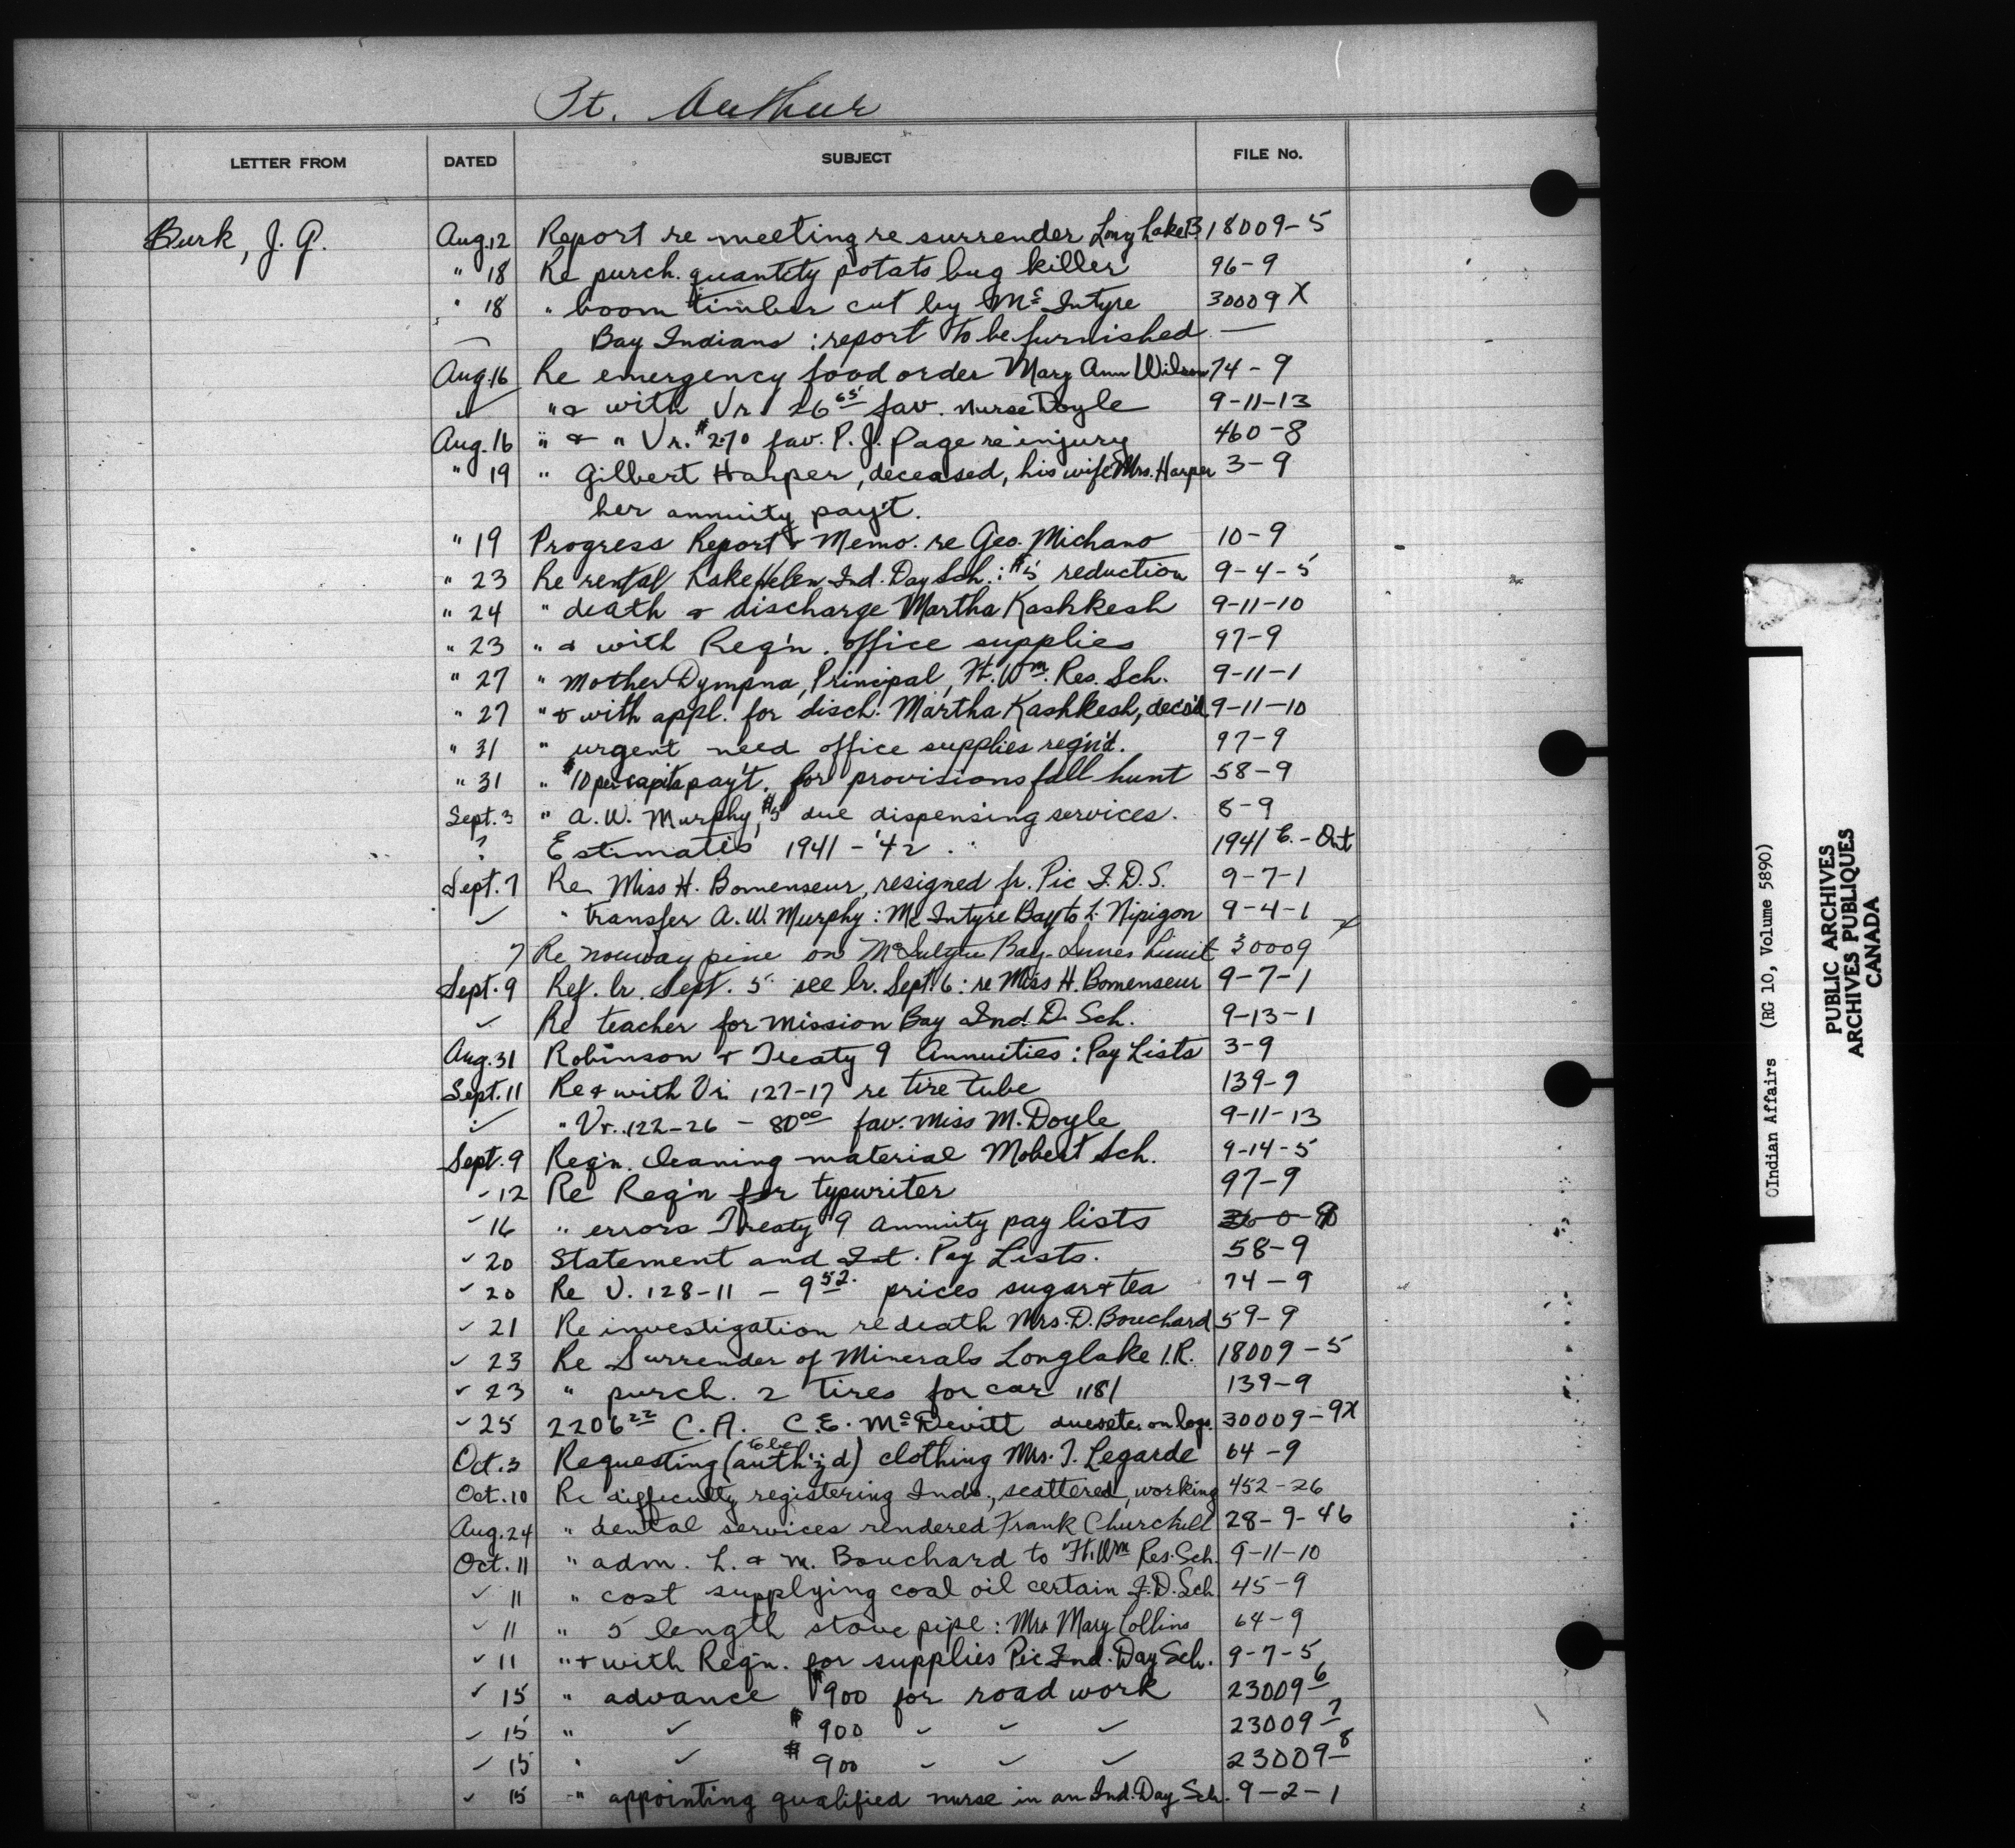 Pt. Arthur
LETTER FROM DATED SUBJECT FILE No.
Burk, J. G. Aug. 12 Report re meeting re surrender Long Lake 18009-5
" 18 Re purch. quantity potato bug killer 96-9
" 18 " boom timber cut by McIntyre 30009 X
Bay Indians : report to be furnished —
Aug. 16 Re emergency food order Mary Ann Wilson 74-9
✓ " & with Vr. 26 65 fav. Nurse Doyle 9-11-13
Aug. 16 " & " Vr. $2.70 fav. P. J. Page re injury 460-8
" 19 " Gilbert Harper, deceased, his wife Mrs. Harper 3-9
her annuity pay't.
" 19 Progress Report & Memo. re Geo. Michano 10-9
" 23 Re rental Lake Helen Ind. Day Sch. : $5 reduction 9-4-5
" 24 " death & discharge Martha Kashkesh 9-11-10
" 23 " & with Req'n. office supplies 97-9
" 27 " Mother Dympna, Principal, Ft. Wm. Res. Sch. 9-11-1
" 27 " & with appl. for disch. Martha Kashkesh, dec'd 9-11-10
" 31 " urgent need office supplies req'n'd. 97-9
" 31 " $10 per capita pay't. for provisions fall hunt 58-9
Sept. 3 " A. W. Murphy, $5 due dispensing services. 8-9
? Estimates 1941-'42. 1941 E.-Ont
Sept. 7 Re Miss H. Bomenseur, resigned fr. Pic I. D. S. 9-7-1
✓ " transfer A. W. Murphy : McIntyre Bay to L. Nipigon 9-4-1
7 Re norway pine on Bay 30009 X
Sept. 9 Ref. lr. Sept. 5 see lr. Sept. 6 : re Miss H. Bomenseur 9-7-1
✓ Re teacher for Mission Bay Ind. D. Sch. 9-13-1
Aug. 31 Robinson & Treaty 9 Annuities : Pay Lists 3-9
Sept. 11 Re & with Vr. 127-17 re tire tube 139-9
✓ " Vr. 122-26 - 80 00 fav. Miss M. Doyle 9-11-13
Sept. 9 Req'n. cleaning material Mobert Sch. 9-14-5
✓ 12 Re Req'n for typewriter 97-9
✓ 16 " errors Treaty 9 annuity pay lists
✓ 20 Statement and Int. Pay Lists. 58-9
✓ 20 Re V. 128-11 - 9 52 prices sugar & tea 74-9
✓ 21 Re investigation re death Mrs. D. Bouchard 59-9
✓ 23 Re Surrender of Minerals Longlake I.R. 18009-5
✓ 23 " purch. 2 tires for car 1181 139-9
✓ 25 2206 22 C. A. C. E. McDevitt dues etc. on logs. 30009-9X
Oct. 3 Requesting (to be auth'z'd) clothing Mrs. T. Legarde 64-9
Oct. 10 Re difficulty registering Inds., scattered, working 452-26
Aug. 24 " dental services rendered Frank Churchill 28-9-46
Oct. 11 " adm. L. & M. Bouchard to Ft. Wm Res. Sch. 9-11-10
✓ 11 " cost supplying coal oil certain I. D. Sch 45-9
✓ 11 " 5 length stove pipe : Mrs Mary Collins 64-9
✓ 11 " & with Req'n. for supplies Pic Ind. Day Sch. 9-7-5
✓ 15 " advance $900 for road work 23009-6
✓ 15 " ✓ $900 ✓ ✓ ✓ 23009-7
✓ 15 " ✓ $900 ✓ ✓ ✓ 23009-8
✓ 15 " appointing qualified nurse in an Ind. Day Sch. 9-2-1
Indian Affairs (RG 10, Volume 5890)
PUBLIC ARCHIVES
ARCHIVES PUBLIQUES
CANADA